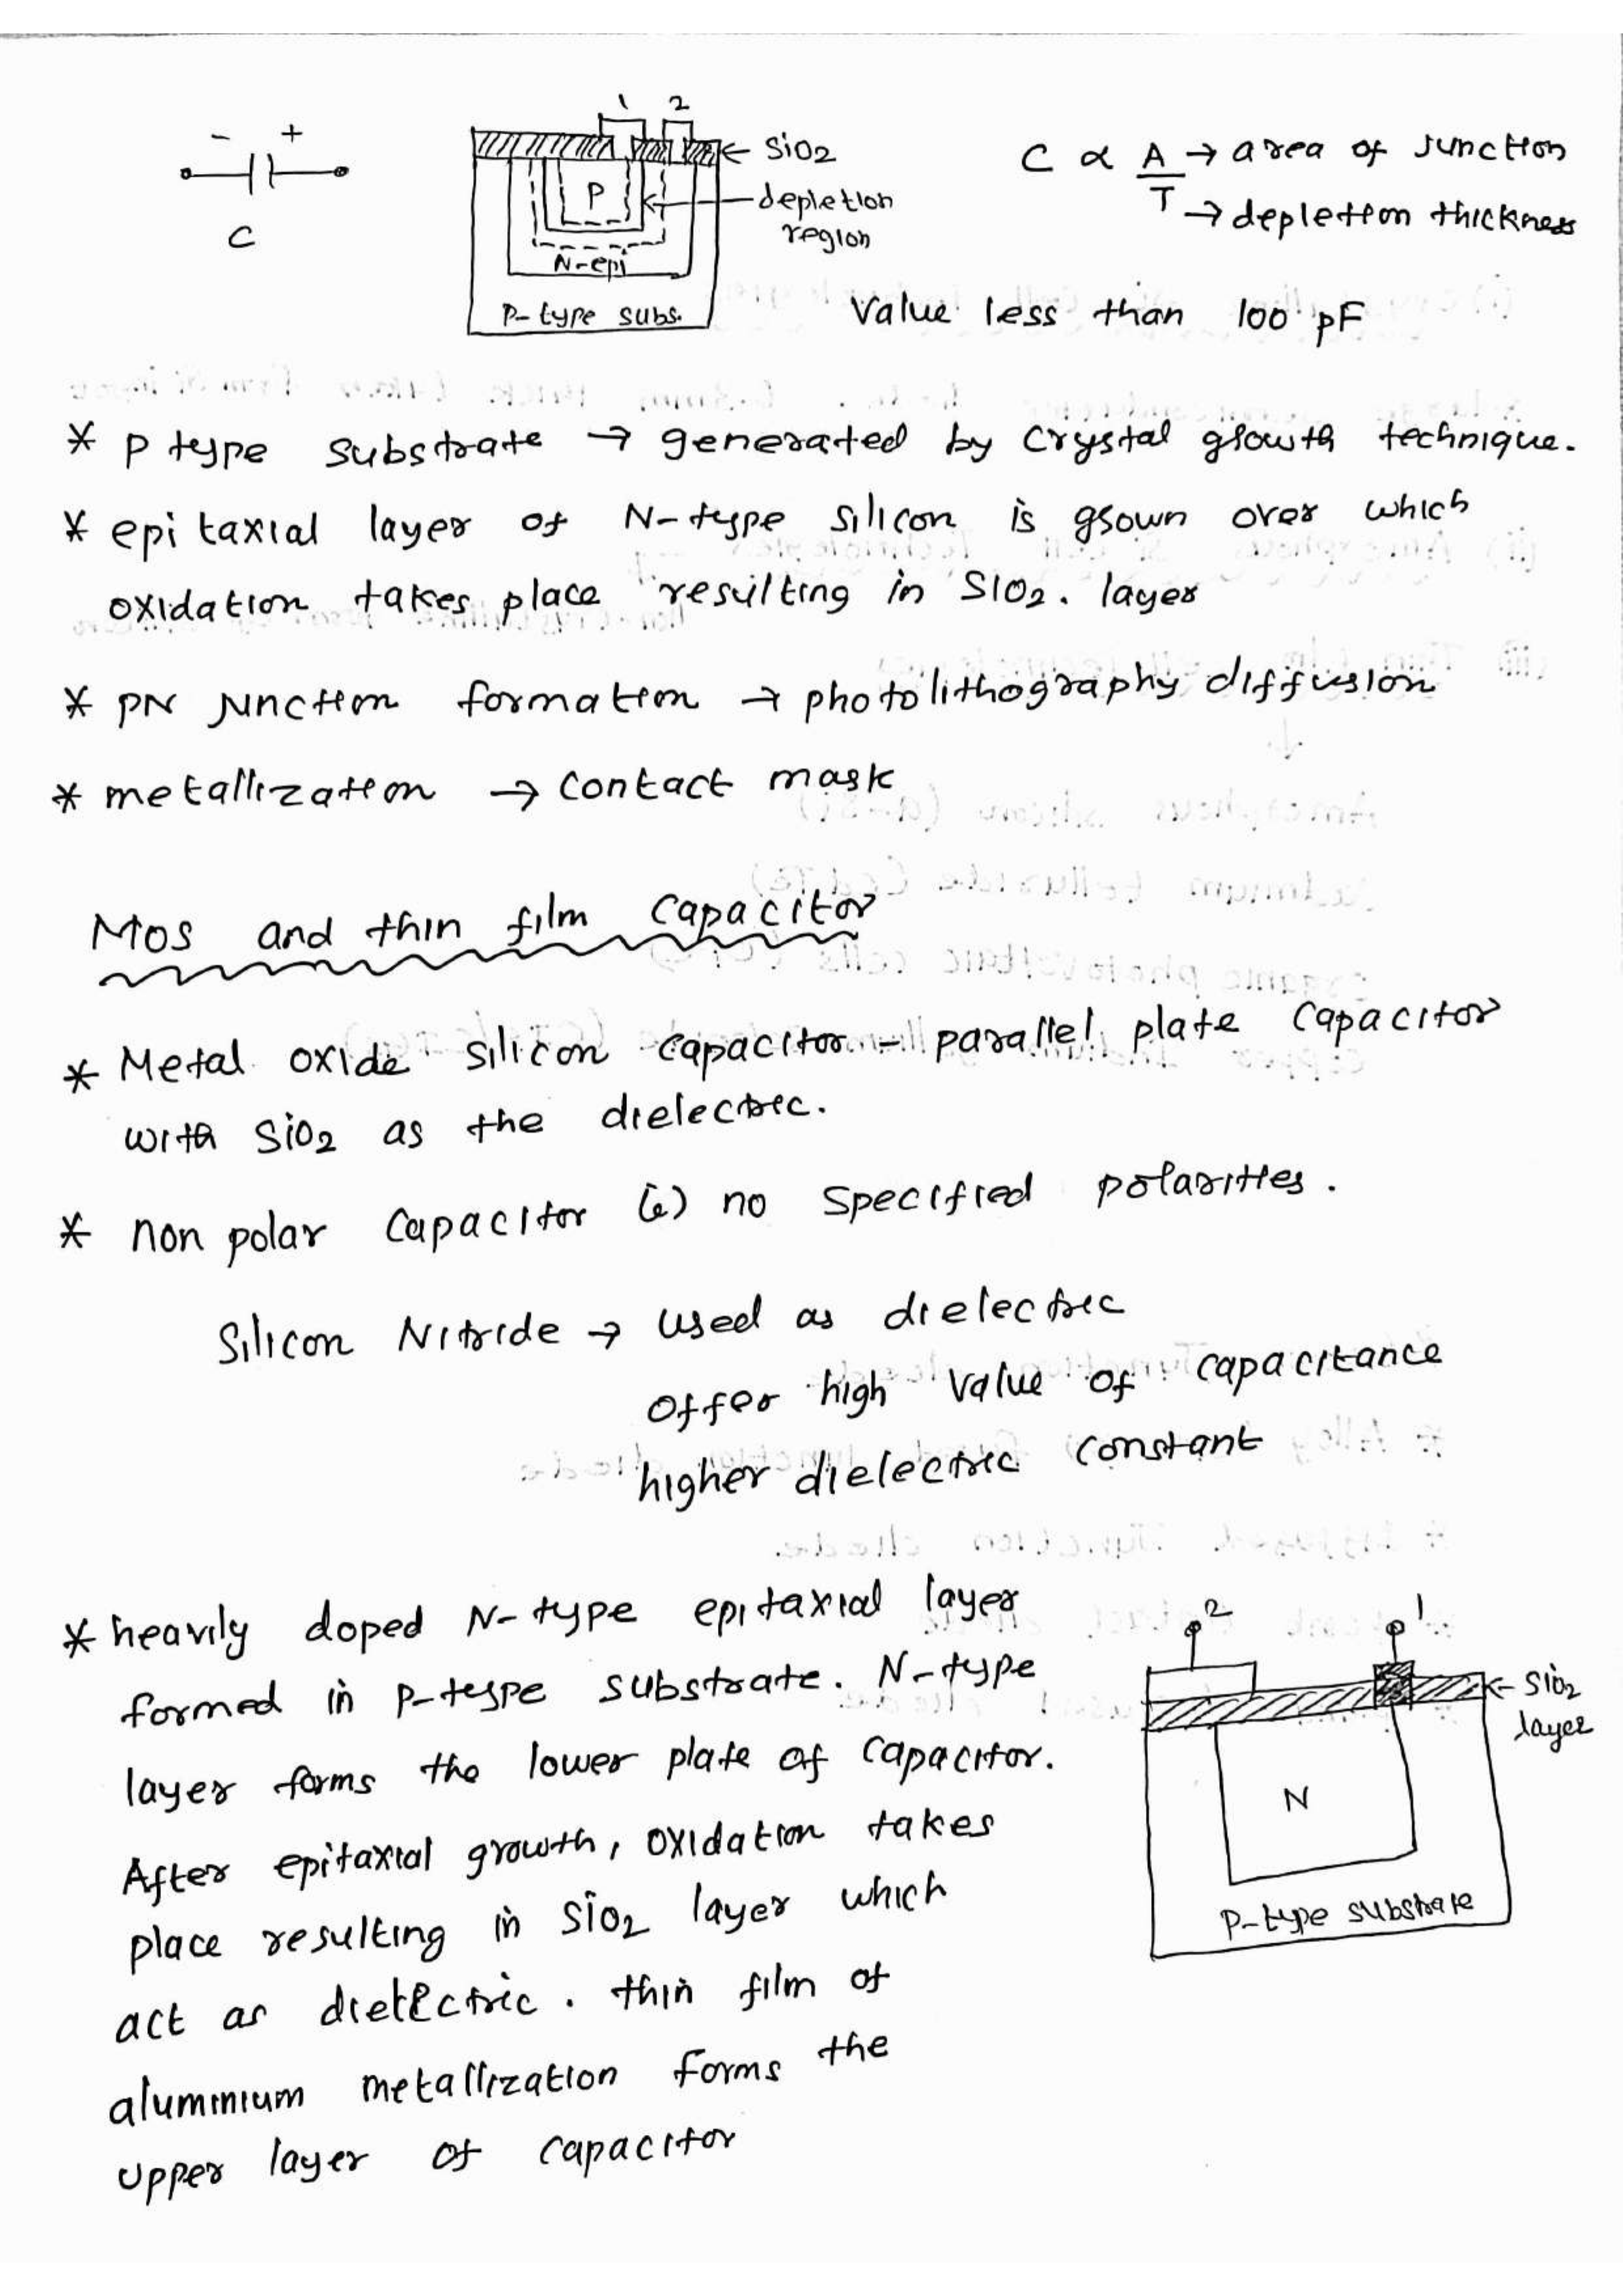 1 2
- +
C
SiO2
depletion
region
P
N-epi
P-type subs.
C ∝ A/T
A → area of junction
T → depletion thickness
Value less than 100 pF
* P type substrate → generated by crystal growth technique.
* epitaxial layer of N-type silicon is grown over which
oxidation takes place resulting in SiO2. layer
* PN junction formation → photolithography diffusion
* metallization → contact mask
Mos and thin film capacitor
* Metal oxide silicon capacitor - parallel plate capacitor
with SiO2 as the dielectric.
* non polar capacitor (ie) no specified polarities.
Silicon Nitride → used as dielectric
offer high value of capacitance
higher dielectric constant
* heavily doped N-type epitaxial layer
formed in P-type substrate. N-type
layer forms the lower plate of capacitor.
After epitaxial growth, oxidation takes
place resulting in SiO2 layer which
act as dielectric. thin film of
aluminium metallization forms the
upper layer of capacitor
2 1
SiO2
layer
N
P-type substrate